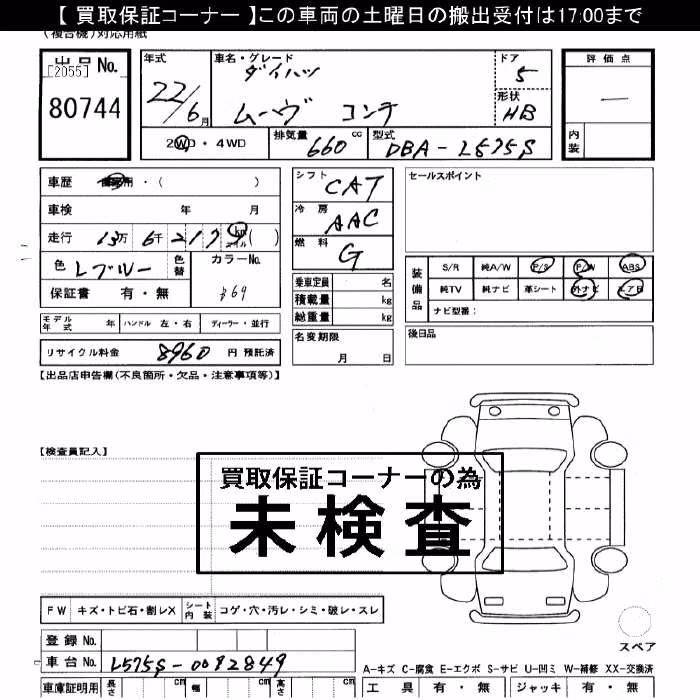 【 買取保証コーナー 】この車両の土曜日の搬出受付は17:00まで
(複合機)対応用紙
出品 No.
[2055]
80744
年式
22/6月
車名・グレード
ダイハツ
ムーヴ コンテ
ドア
5
形状
HB
評価点
―
内装
2WD・4WD
排気量
660 cc
型式
DBA-L575S
車歴 ・( )
車検 年 月
走行 13万 6千 2179 km マイル ( )
色 Lブルー
色替
カラーNo.
保証書 有・無
モデル年式 年
ハンドル 左・右
ディーラー・並行
リサイクル料金 8960 円 預託済
シフト
CAT
冷房
AAC
燃料
G
乗車定員 名
積載量 kg
総重量 kg
名変期限
月 日
セールスポイント
装備品
S/R 純A/W P/S P/W ABS
純TV 純ナビ 革シート 外ナビ エアB
ナビ型番:
後日品
【出品店申告欄(不良箇所・欠品・注意事項等)】
【検査員記入】
買取保証コーナーの為
未検査
FW キズ・トビ石・割レX
シート内装 コゲ・穴・汚レ・シミ・破レ・スレ
登録 No.
車台 No. L575S-0082849
車庫証明用 長さ cm 幅 cm 高さ cm
スペア
A-キズ C-腐食 E-エクボ S-サビ U-凹ミ W-補修 XX-交換済
工具 有・無 ジャッキ 有・無